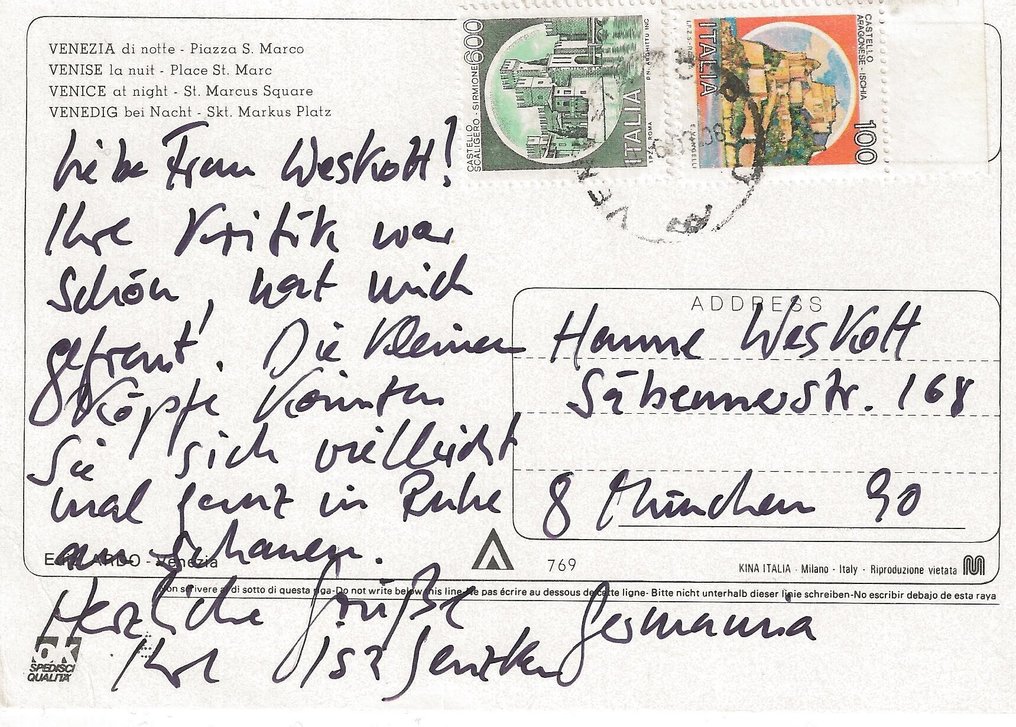 VENEZIA di notte - Piazza S. Marco
VENISE la nuit - Place St. Marc
VENICE at night - St. Marcus Square
VENEDIG bei Nacht - Skt. Markus Platz
CASTELLO
SCALIGERO - SIRMIONE
600
ITALIA
I.P.Z.S. ROMA
ITALIA
CASTELLO
ARAGONESE - ISCHIA
100
Liebe Frau Weskott!
Ihre Kritik war
schön, hat mich
gefreut. Die kleinen
Köpfe könnten
Sie sich vielleicht
mal ganz in Ruhe
anschauen.
Herzliche Grüße
Ihre Isa Genzken
ADDRESS
Hanne Weskott
Säbenerstr. 168
8 München 90
Germania
ARDO - Venezia
769
KINA ITALIA - Milano - Italy - Riproduzione vietata
Non scrivere al di sotto di questa riga-Do not write below this line-Ne pas écrire au dessous de cette ligne- Bitte nicht unterhalb dieser linie schreiben-No escribir debajo de esta raya
ok
SPEDISCI
QUALITÀ